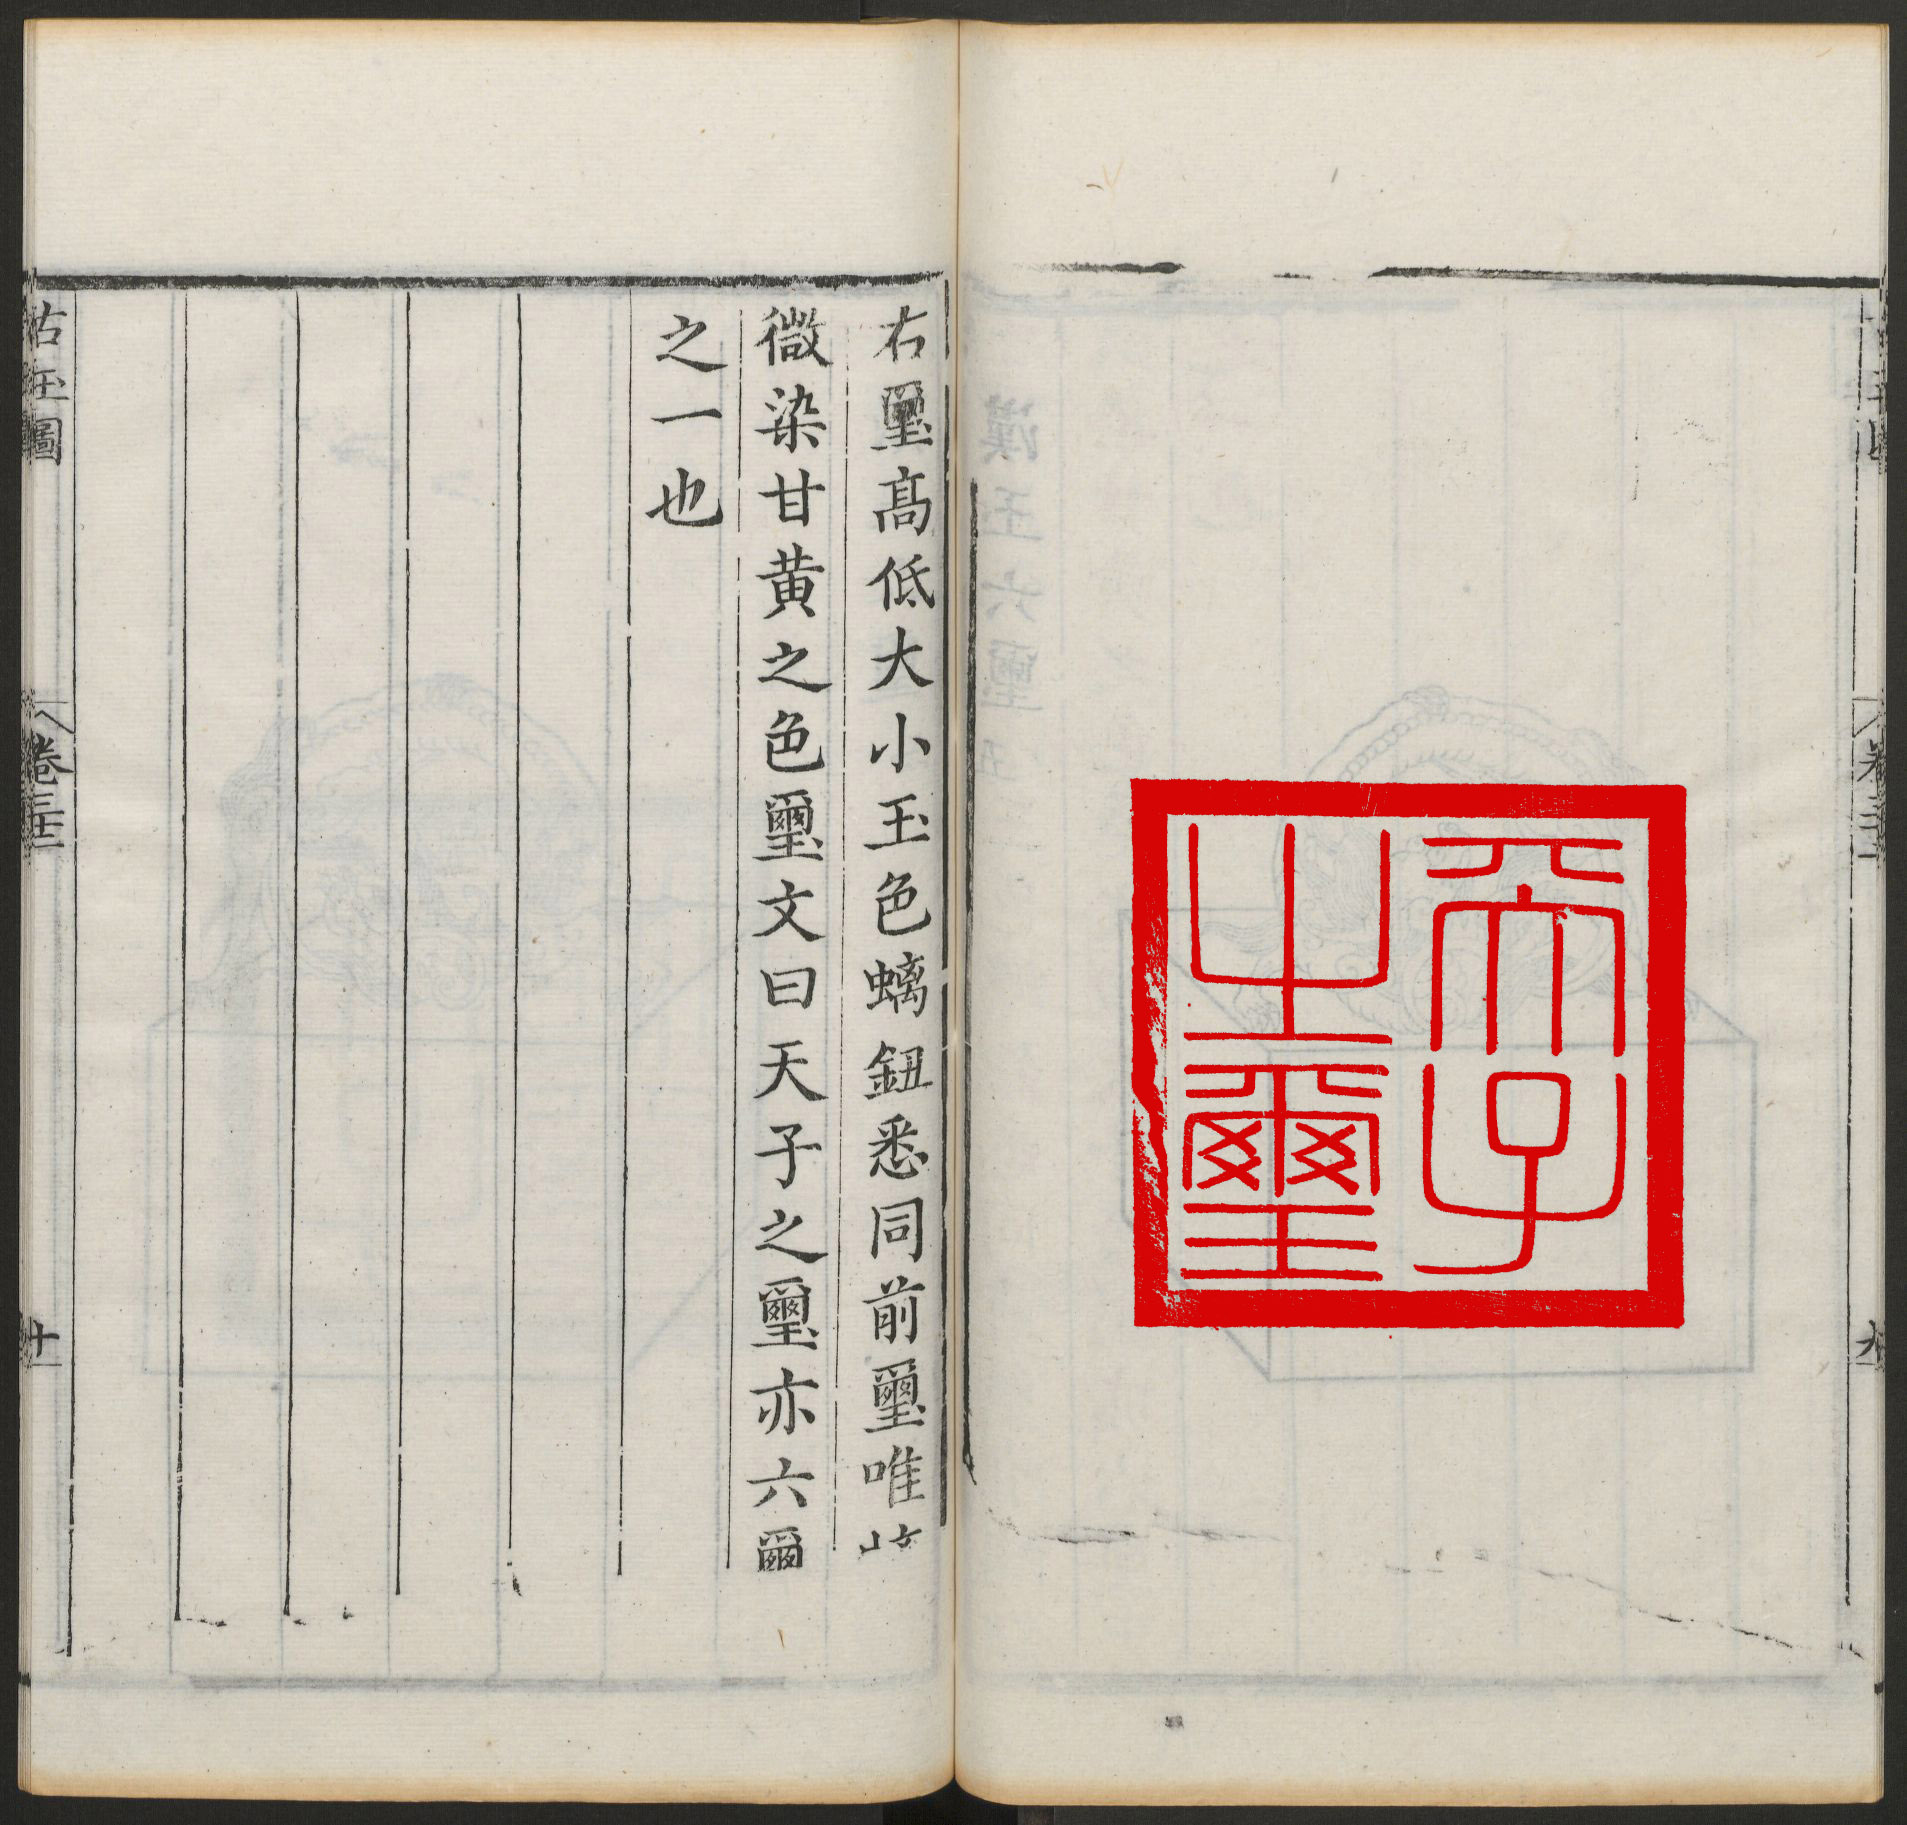 天子
之璽
右璽高低大小玉色螭鈕悉同前璽唯
微染甘黄之色璽文曰天子之璽亦六璽
之一也
古玉圖
卷三十三
十
九